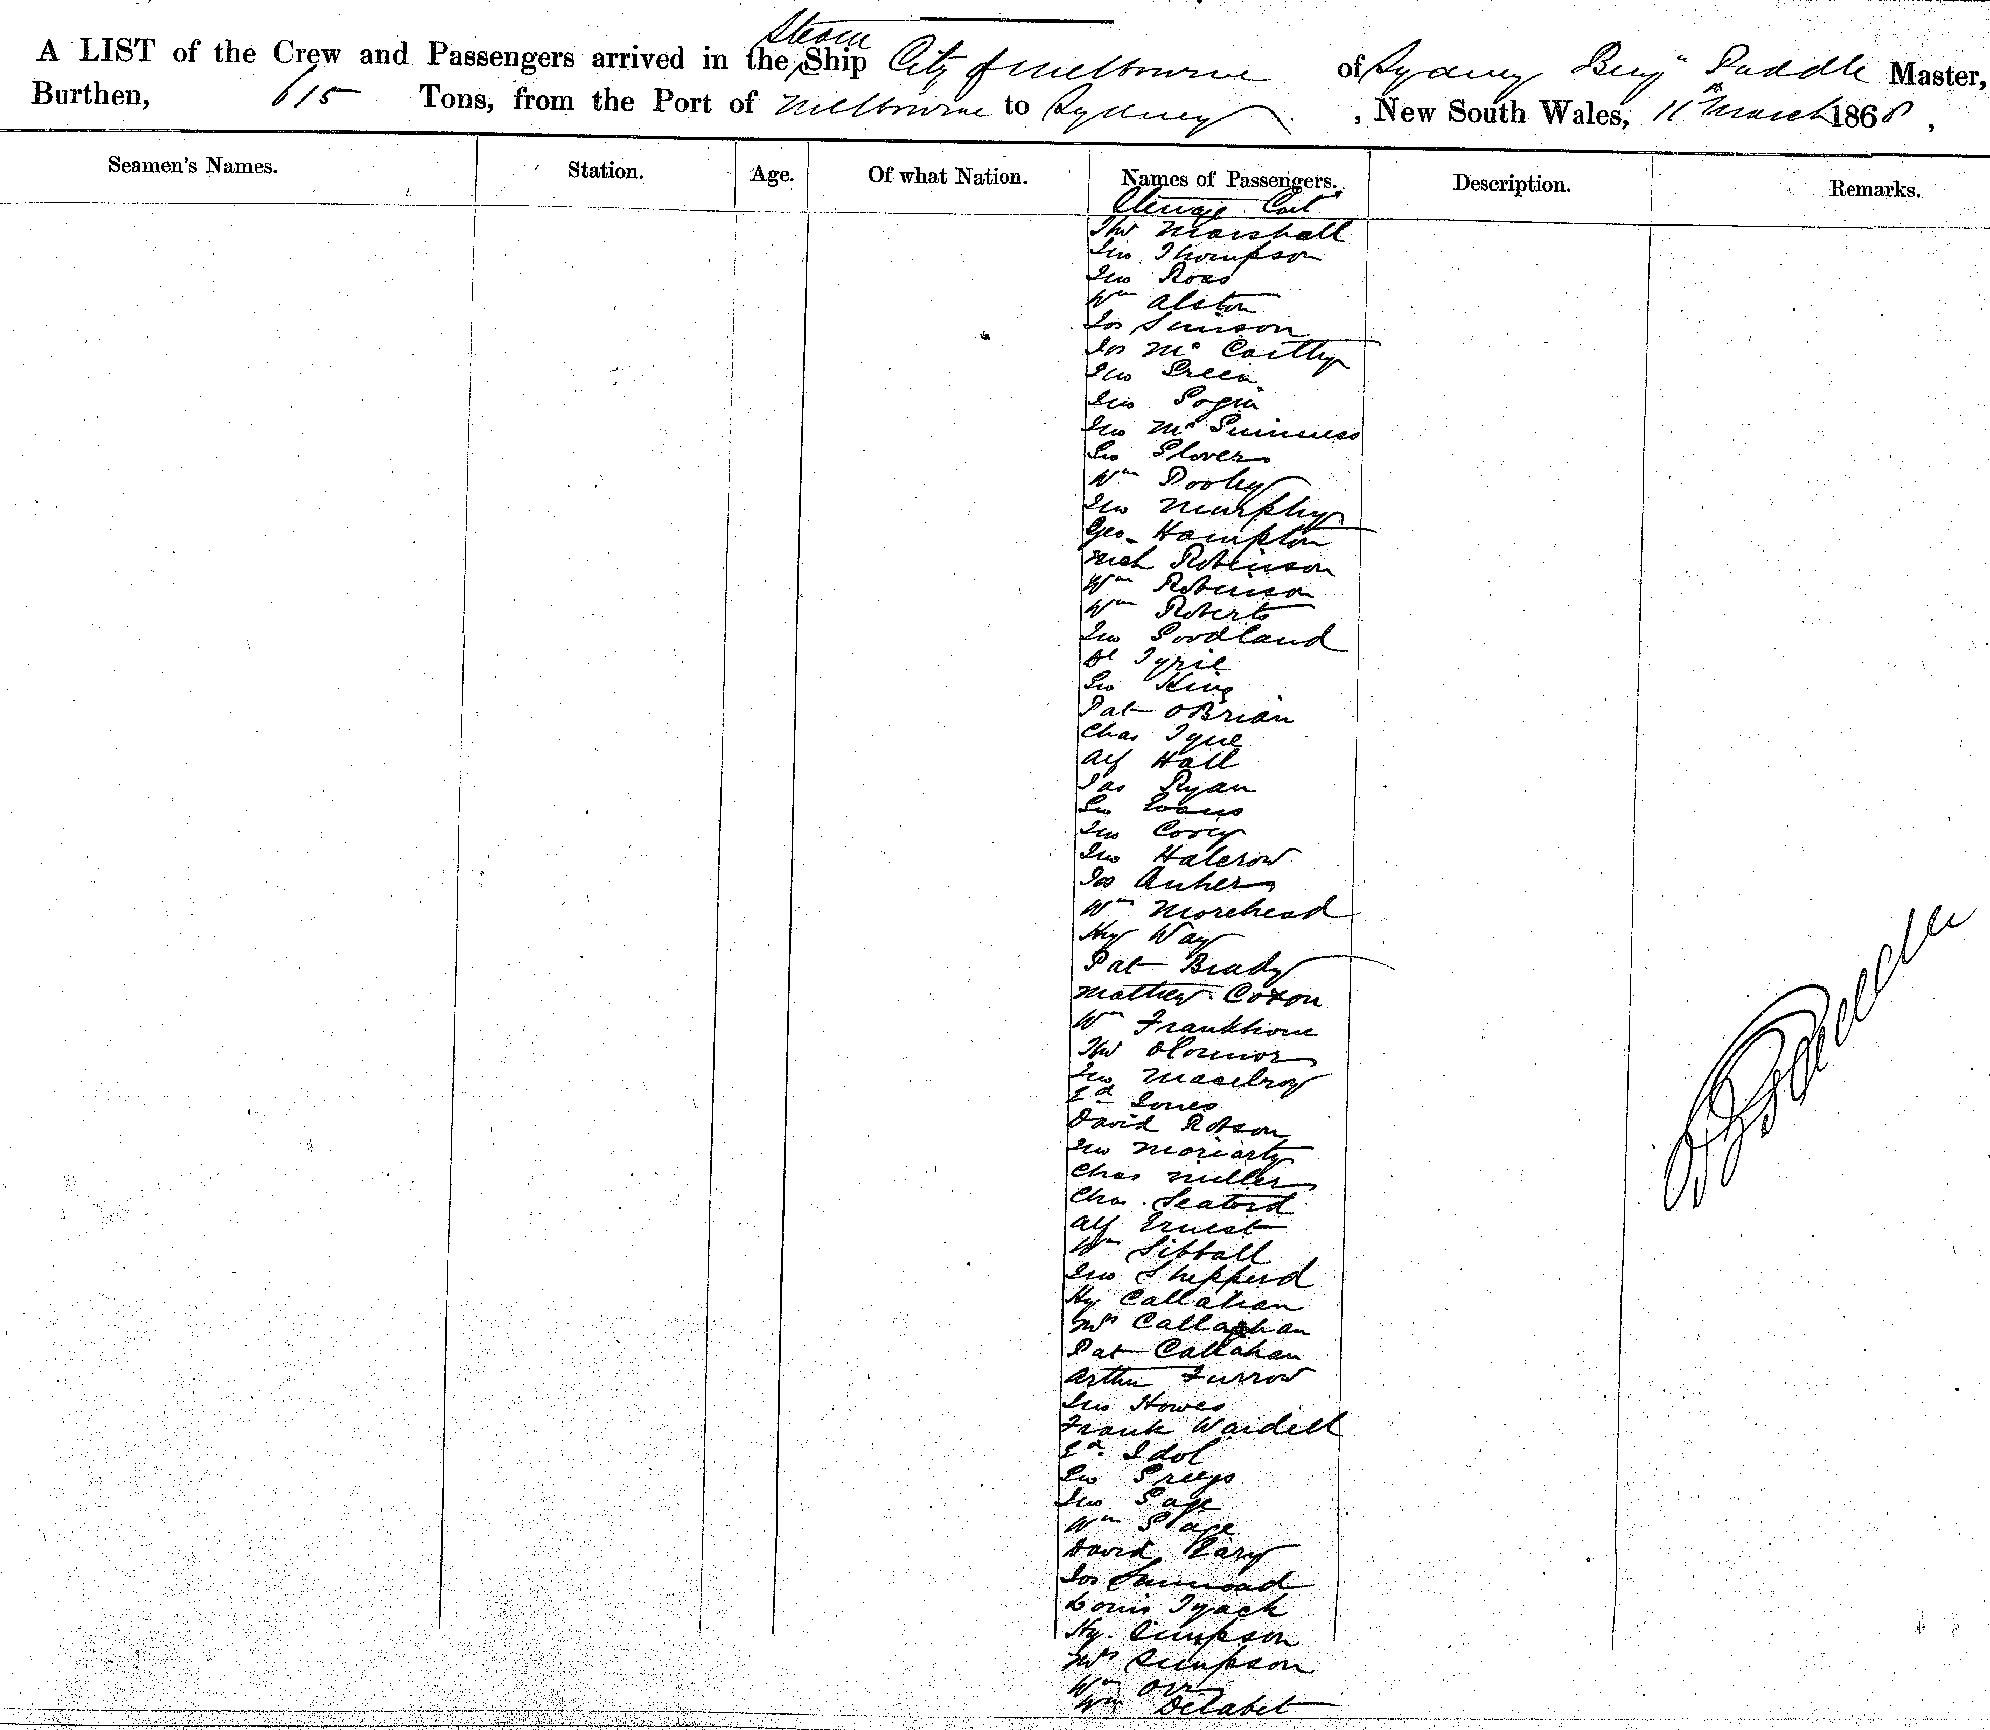 A LIST of the Crew and Passengers arrived in the Steam Ship City of Melbourne of Sydney Benjn Paddle Master,
Burthen, 615 Tons, from the Port of Melbourne to Sydney, New South Wales, 11th March 1868,
Seamen's Names. Station. Age. Of what Nation. Names of Passengers. Description. Remarks.
Steerage Cont
Thos Marshall
Jno Thompson
Jno Ross
Wm Alston
Jos Simson
Jos McCarthy
Jno Green
Jno
Jno McGuinness
Geo Glover
Wm Dooley
Jno Murphy
Geo Hampton
Mich Robinson
Wm Robinson
Wm Roberts
Jno Goodland
Tyrie
Geo King
Pat OBrian
Chas Tyrie
Alf Hall
Jas Ryan
Geo Evans
Jno Corey
Jno Halcrow
Jos
Wm Morehead
Hy Way
Pat Brady
Mathew Coxon
Wm
Thos OConnor
Jno Macelroy
Ed Jones
David Robson
Jno Moriarty
Chas Miller
Chas
Alf Ernest
Wm Sibball
Jno Shepperd
Hy Callahan
Mrs Callaghan
Pat Callahan
Arthur Furrow
Jno Howes
Frank Wardell
Ed Idol
Geo Greegs
Jno Page
Wm Page
David
Jos
Louis Tyack
Hy Simpson
Mrs Simpson
Wm Orr
Wm Delabet